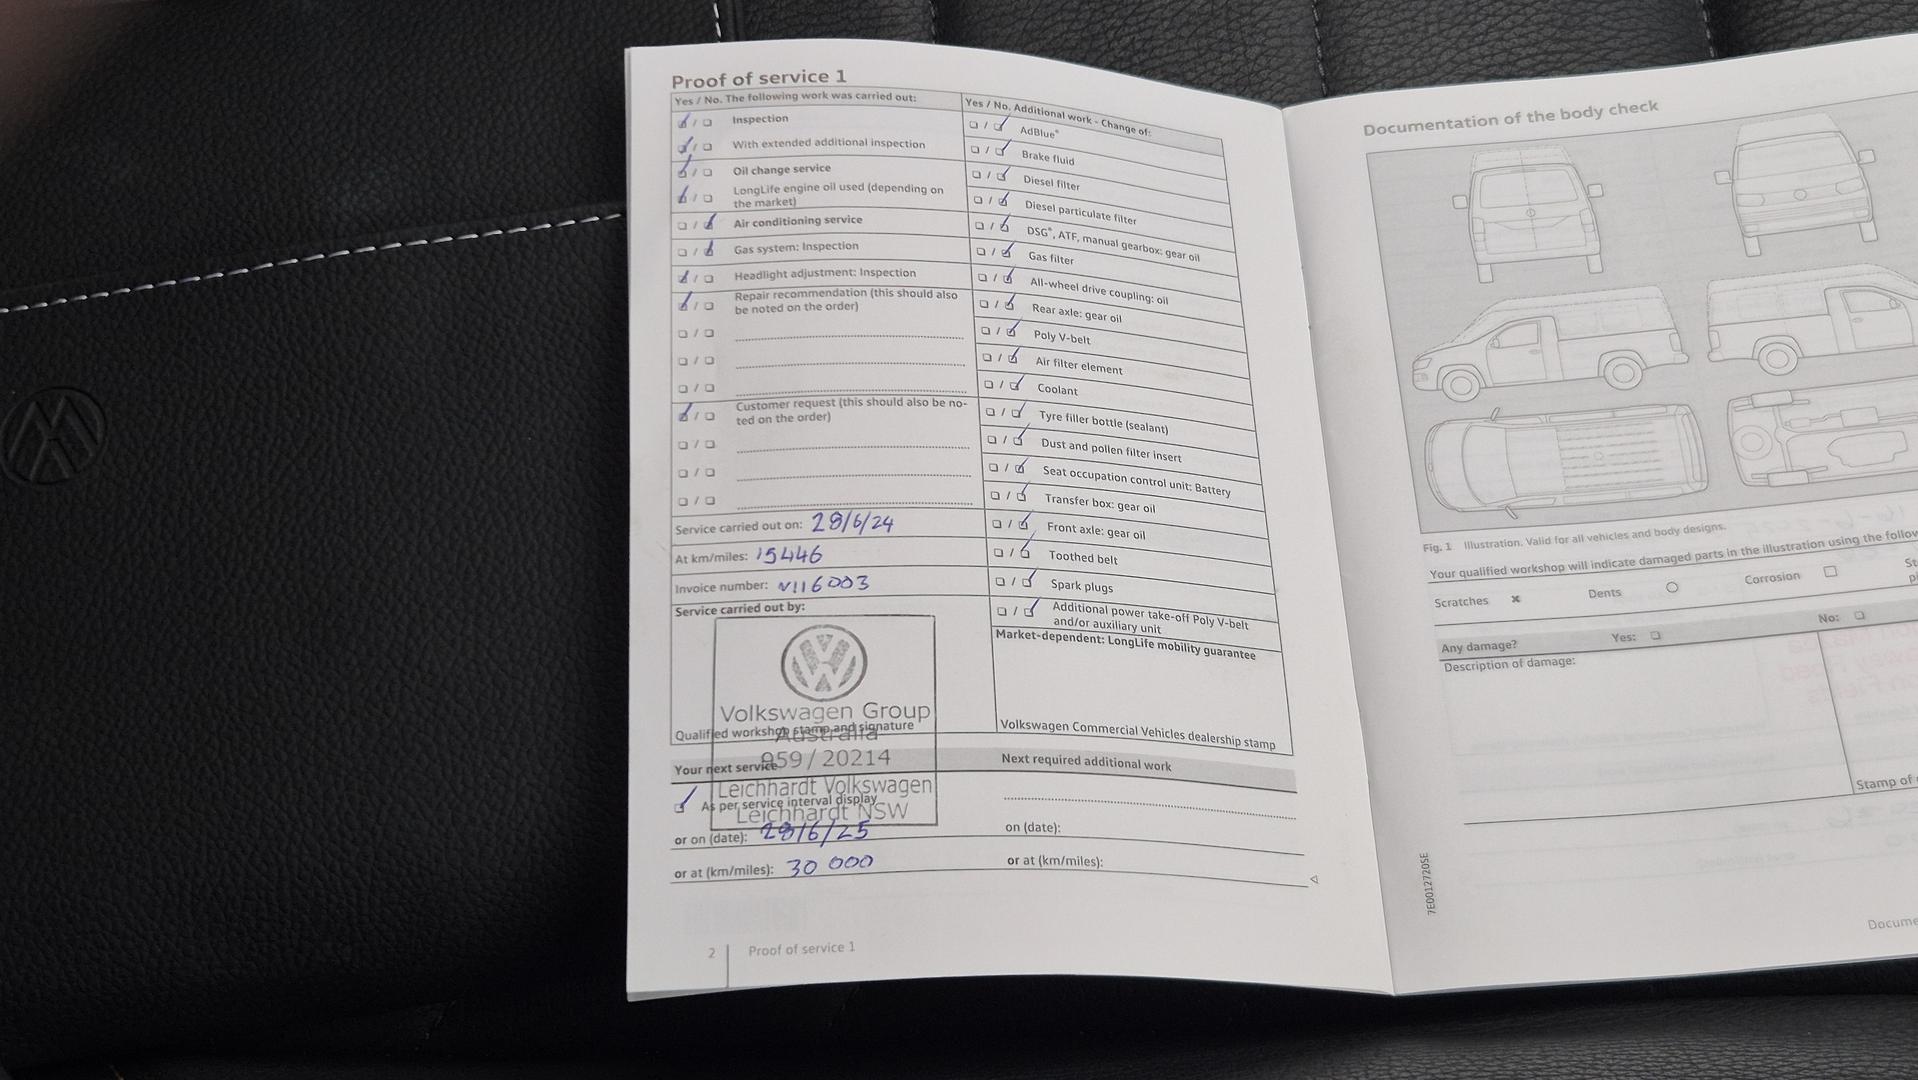 Proof of service 1
Yes / No. The following work was carried out:
Inspection
With extended additional inspection
Oil change service
LongLife engine oil used (depending on
the market)
Air conditioning service
Gas system: Inspection
Headlight adjustment: Inspection
Repair recommendation (this should also
be noted on the order)
Customer request (this should also be no-
ted on the order)
Service carried out on: 28/6/24
At km/miles: 15446
Invoice number: N116003
Service carried out by:
Volkswagen Group
Australia
Qualified workshop stamp and signature
959 / 20214
Leichhardt Volkswagen
Leichhardt NSW
Your next service
As per service interval display
or on (date): 28/6/25
or at (km/miles): 30 000
Yes / No. Additional work - Change of:
AdBlue®
Brake fluid
Diesel filter
Diesel particulate filter
DSG®, ATF, manual gearbox: gear oil
Gas filter
All-wheel drive coupling: oil
Rear axle: gear oil
Poly V-belt
Air filter element
Coolant
Tyre filler bottle (sealant)
Dust and pollen filter insert
Seat occupation control unit: Battery
Transfer box: gear oil
Front axle: gear oil
Toothed belt
Spark plugs
Additional power take-off Poly V-belt
and/or auxiliary unit
Market-dependent: LongLife mobility guarantee
Volkswagen Commercial Vehicles dealership stamp
Next required additional work
on (date):
or at (km/miles):
2 Proof of service 1
Documentation of the body check
Fig. 1 Illustration. Valid for all vehicles and body designs.
Your qualified workshop will indicate damaged parts in the illustration using the follow
Scratches
Dents
Corrosion
Any damage? Yes: No:
Description of damage:
Stamp of
7E0012720SE
Docume